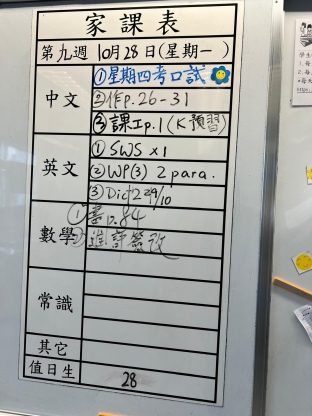 家課表
第九週 10月28日(星期一)
中文
①星期四考口試
②作p.26-31
③課工p.1(K預習)
英文
①SWS x1
②WP(3) 2 para.
③Dict2 29/10
數學
①書p.84
②進評簽改
常識
其它
值日生 28